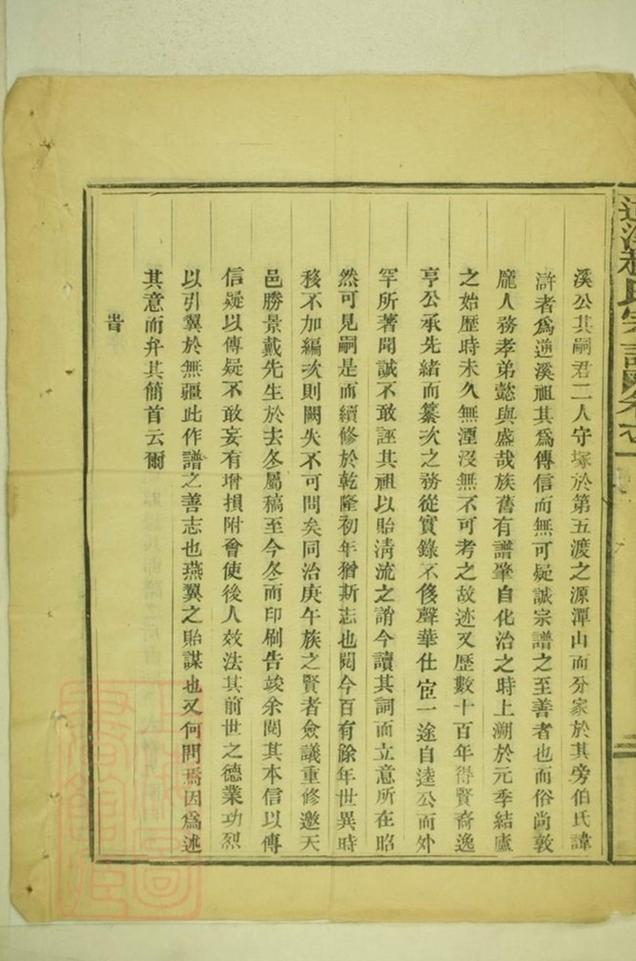 溪公其嗣君二人守塚於第五渡之源潭山而分家於其旁伯氏諱
滸者為遊溪祖其為傳信而無可疑誠宗譜之至善者也而俗尚敦
龐人務孝弟懿與盛哉族舊有譜肇自化治之時上溯於元季結廬
之始歷時未久無湮沒無不可考之故迹又歷數十百年得賢裔逸
亨公承先緒而纂次之務從實錄不侈聲華仕宦一途自逵公而外
罕所著聞誠不敢誣其祖以貽淸流之誚今讀其詞而立意所在昭
然可見嗣是而續修於乾隆初年猶斯志也閱今百有餘年世異時
移不加編次則闕失不可問矣同治庚午族之賢者僉議重修邀天
邑勝景戴先生於去冬屬稿至今冬而印刷告竣余閱其本信以傳
信疑以傳疑不敢妄有增損附會使後人效法其前世之德業功烈
以引翼於無疆此作譜之善志也燕翼之貽謀也又何間焉因為述
其意而弁其簡首云爾
旹
氏宗譜